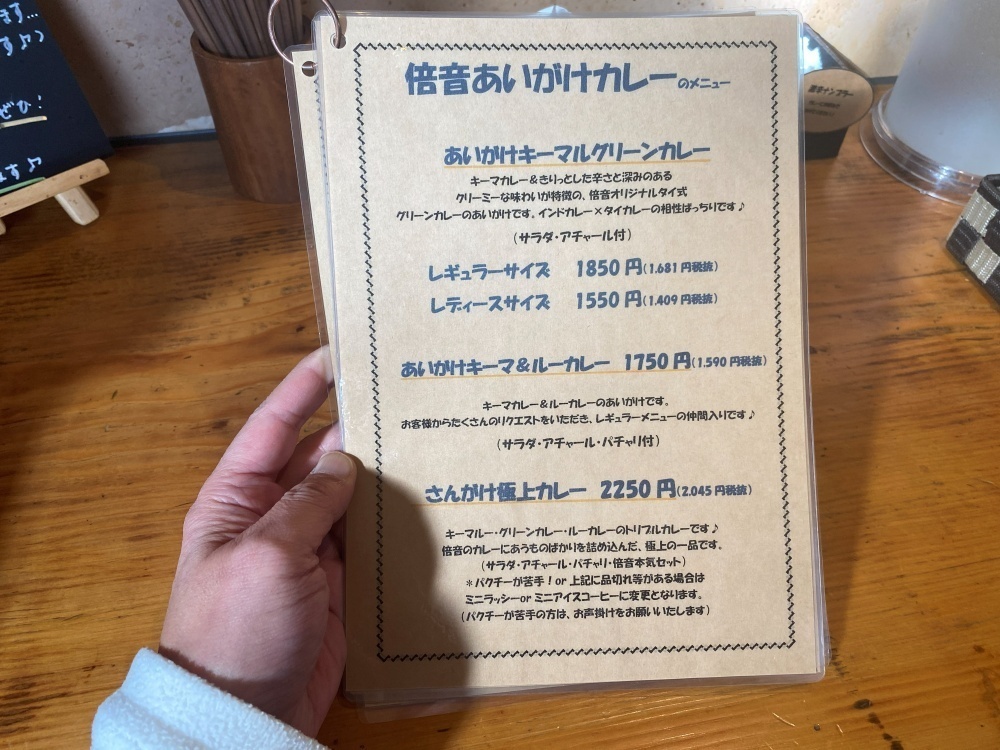 倍音あいがけカレーのメニュー
あいがけキーマルグリーンカレー
キーマカレー＆きりっとした辛さと深みのある
クリーミーな味わいが特徴の、倍音オリジナルタイ式
グリーンカレーのあいがけです。インドカレー×タイカレーの相性ばっちりです♪
(サラダ・アチャール付)
レギュラーサイズ 1850円(1.681円税抜)
レディースサイズ 1550円(1.409円税抜)
あいがけキーマ＆ルーカレー 1750円(1.590円税抜)
キーマカレー＆ルーカレーのあいがけです。
お客様からたくさんのリクエストをいただき、レギュラーメニューの仲間入りです♪
(サラダ・アチャール・パチャリ付)
さんがけ極上カレー 2250円(2.045円税抜)
キーマルー・グリーンカレー・ルーカレーのトリプルカレーです♪
倍音のカレーにあうものばかりを詰め込んだ、極上の一品です。
(サラダ・アチャール・パチャリ・倍音本気セット)
＊パクチーが苦手！or 上記に品切れ等がある場合は
ミニラッシーor ミニアイスコーヒーに変更となります。
(パクチーが苦手の方は、お声掛けをお願いいたします)
ます…
す♪)
ぜひ！
ます♪
倍音ナンプラー